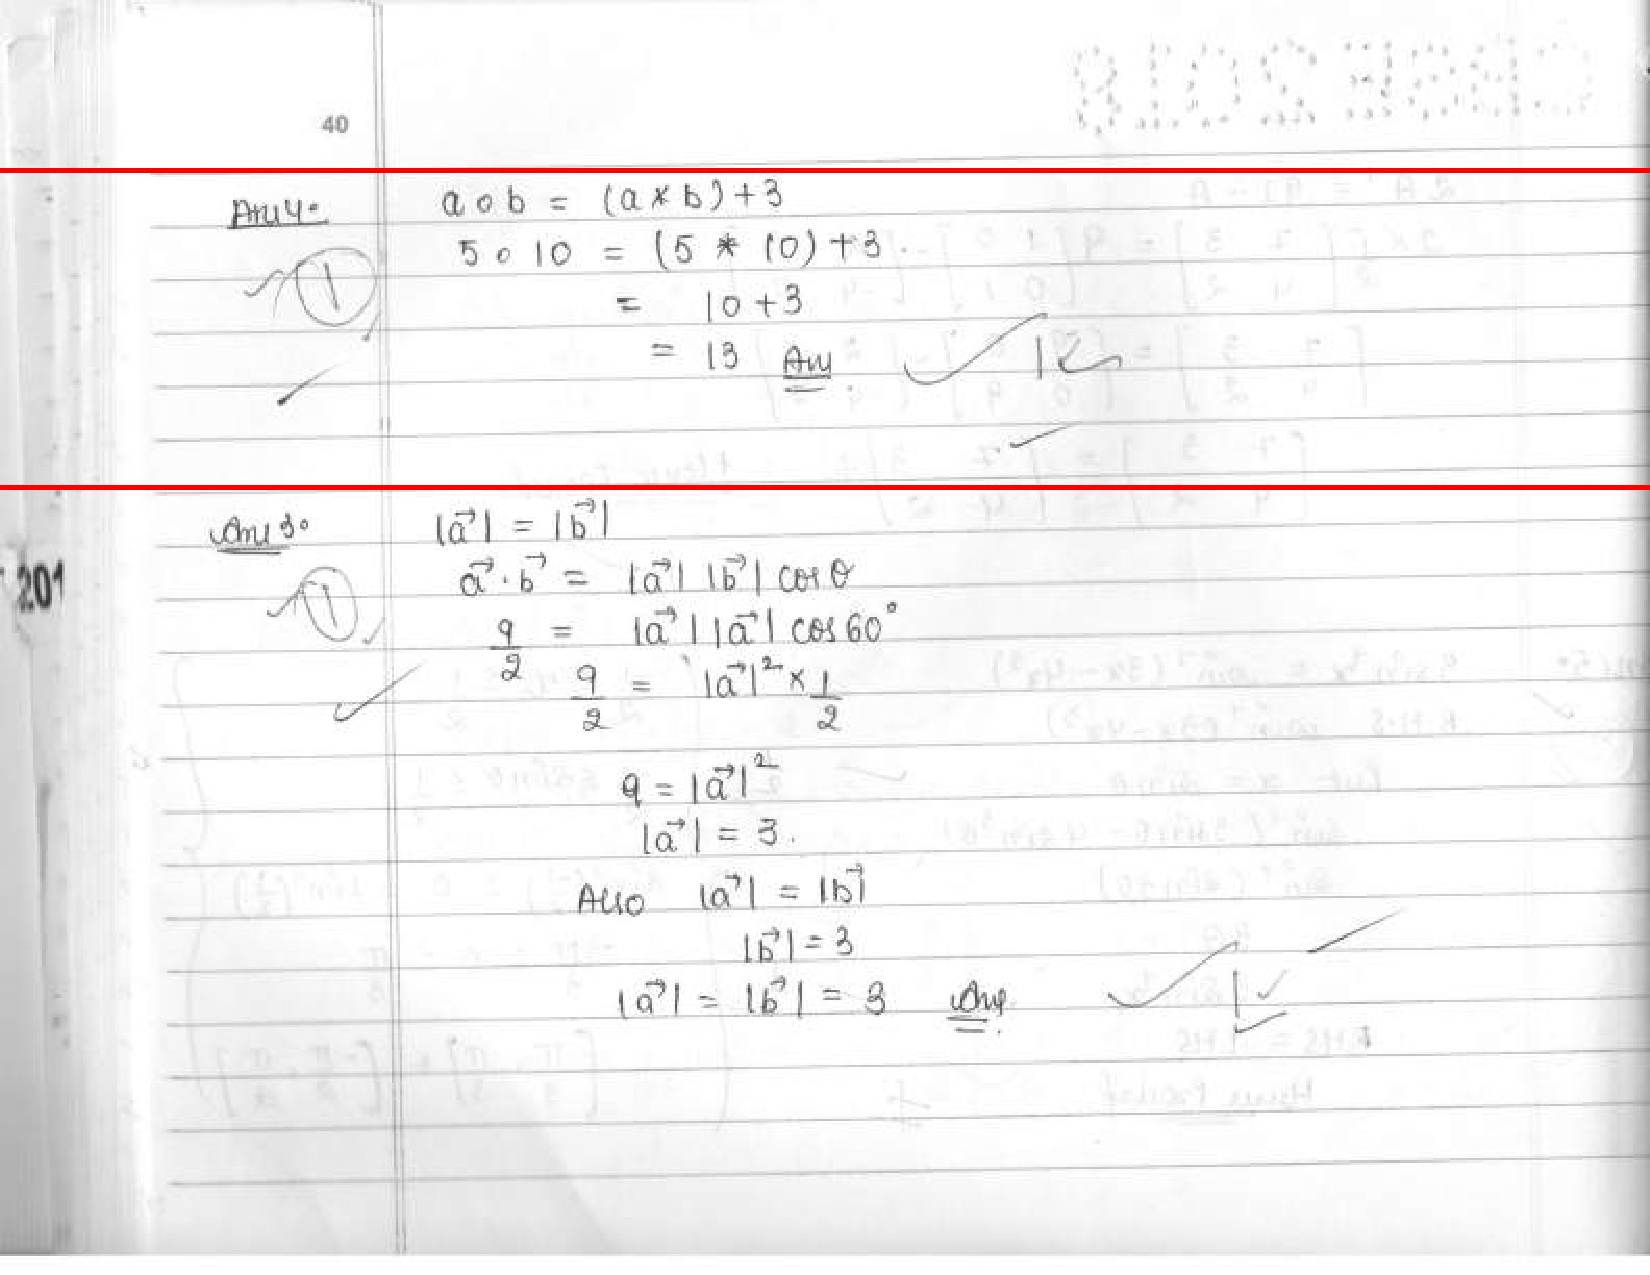 CBSE2018
40
Ans 4. a o b = (a * b) + 3
5 o 10 = (5 * 10) + 3.
= 10 + 3
= 13 Ans
1
1
Ans 3. |a⃗| = |b⃗|
a⃗ · b⃗ = |a⃗| |b⃗| cos θ
201
1
9/2 = |a⃗| |a⃗| cos 60°
9/2 = |a⃗|² × 1/2
9 = |a⃗|²
|a⃗| = 3.
Also |a⃗| = |b⃗|
|b⃗| = 3
|a⃗| = |b⃗| = 3 Ans.
1